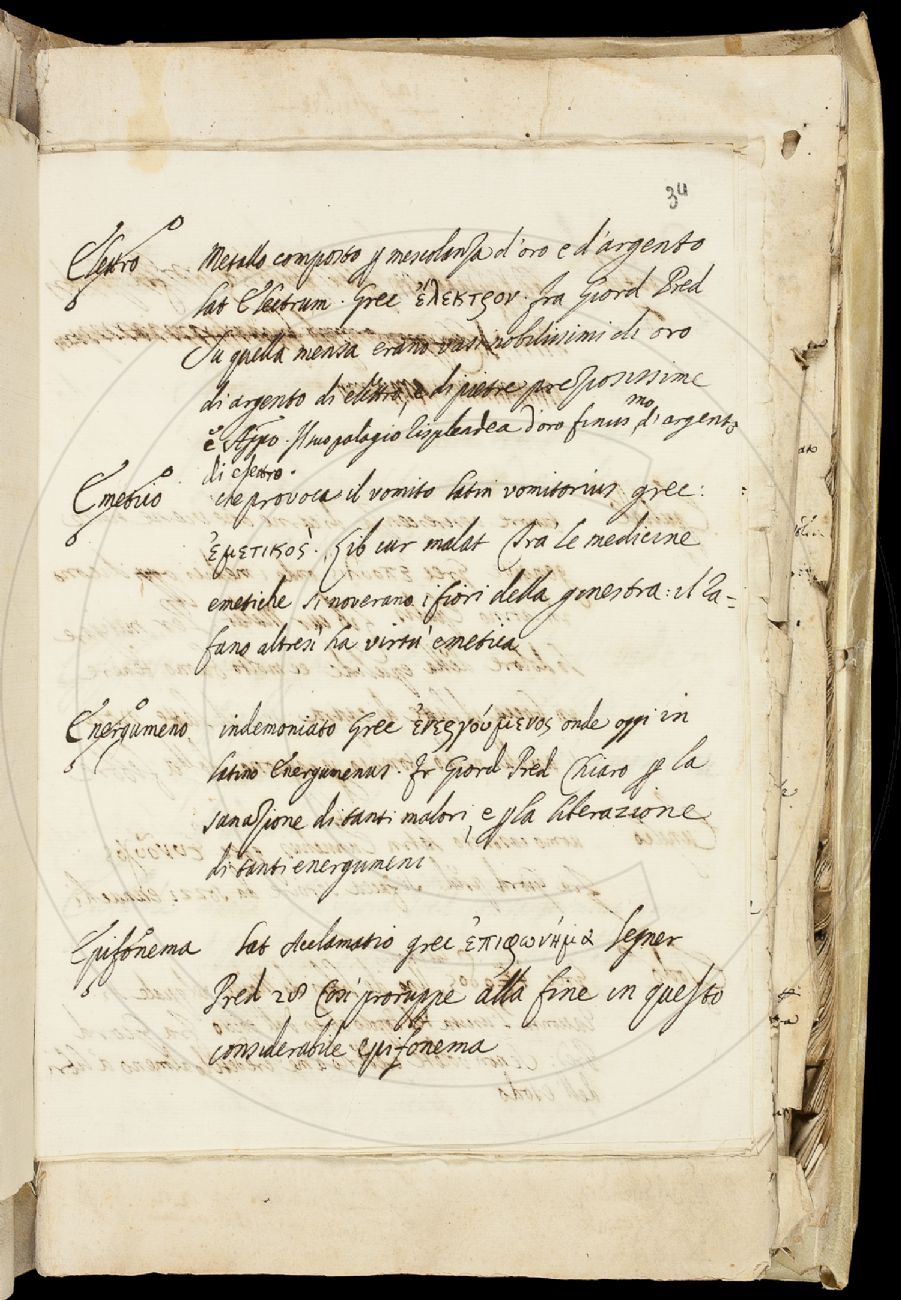 34
Elettro Metallo composto p mescolanza d'oro e d'argento
Lat Electrum. Grec ἔλεκτρον. Fra Giord Pred
Su quella mensa erano vasi nobilissimi di oro
di argento di elettro, e di pietre preziosissime
e Appo. Il suo palagio risplendea d'oro finissmo, d'argento
di elettro.
Emetico che provoca il vomito Latin vomitorius grec:
ἐμετικὸς. Lib cur malat Tra le medicine
emetiche si noverano i fiori della ginestra: il ra=
fano altresì ha virtù emetica
Energumeno indemoniato Grec ἐνεργούμενος onde oggi in
latino Energumenus. Fr Giord Pred Chiaro p la
sanazione di tanti malori, e p la liberazione
di tanti energumeni
Epifonema Lat Acclamatio grec ἐπιφωνήμα Segner
Pred 28 Così proruppe alla fine in questo
considerabile epifonema